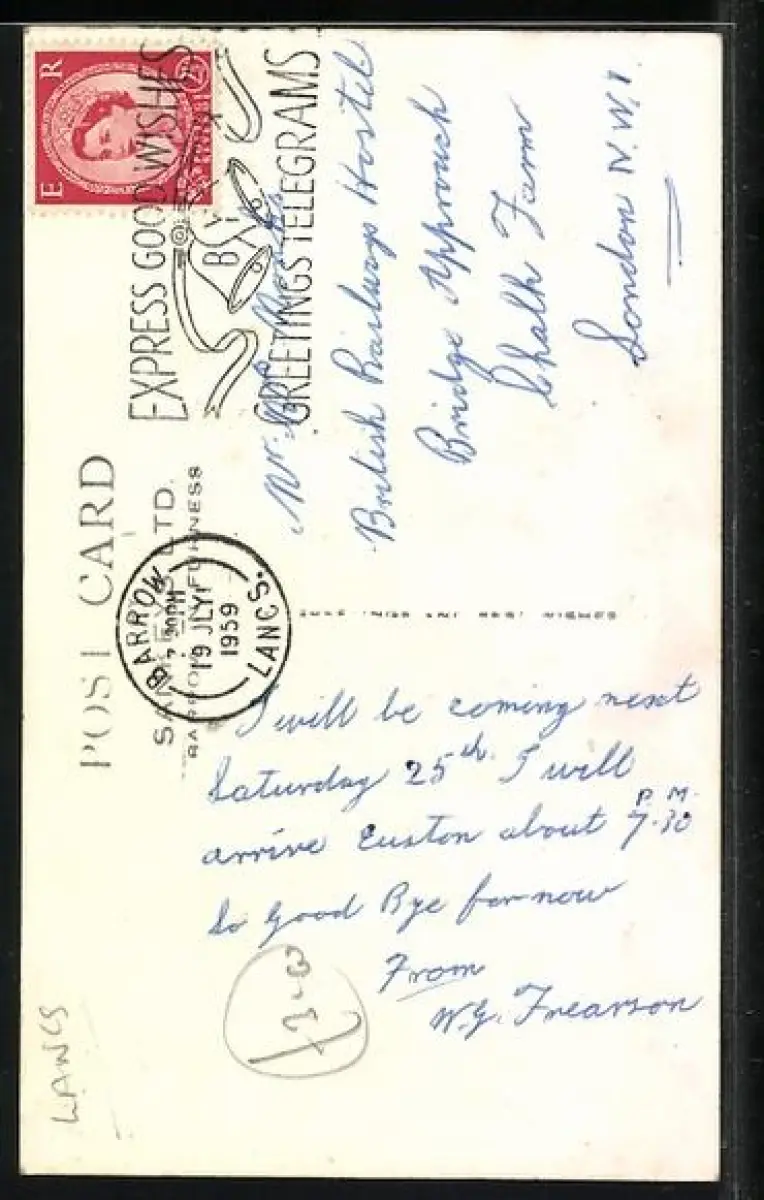 E R
EXPRESS GOOD WISHES
BY
GREETINGS TELEGRAMS
POST CARD
LTD.
BARROW IN FURNESS
BARROW
7.30PM
19 JLY
1959
LANCS.
Mr.
British Railways Hostel
Bridge Approach
Chalk Farm
London N.W.1.
I will be coming next
Saturday 25th. I will
arrive Euston about 7.30 P.M.
So Good Bye for now
From
W.G. Frearson
LANCS